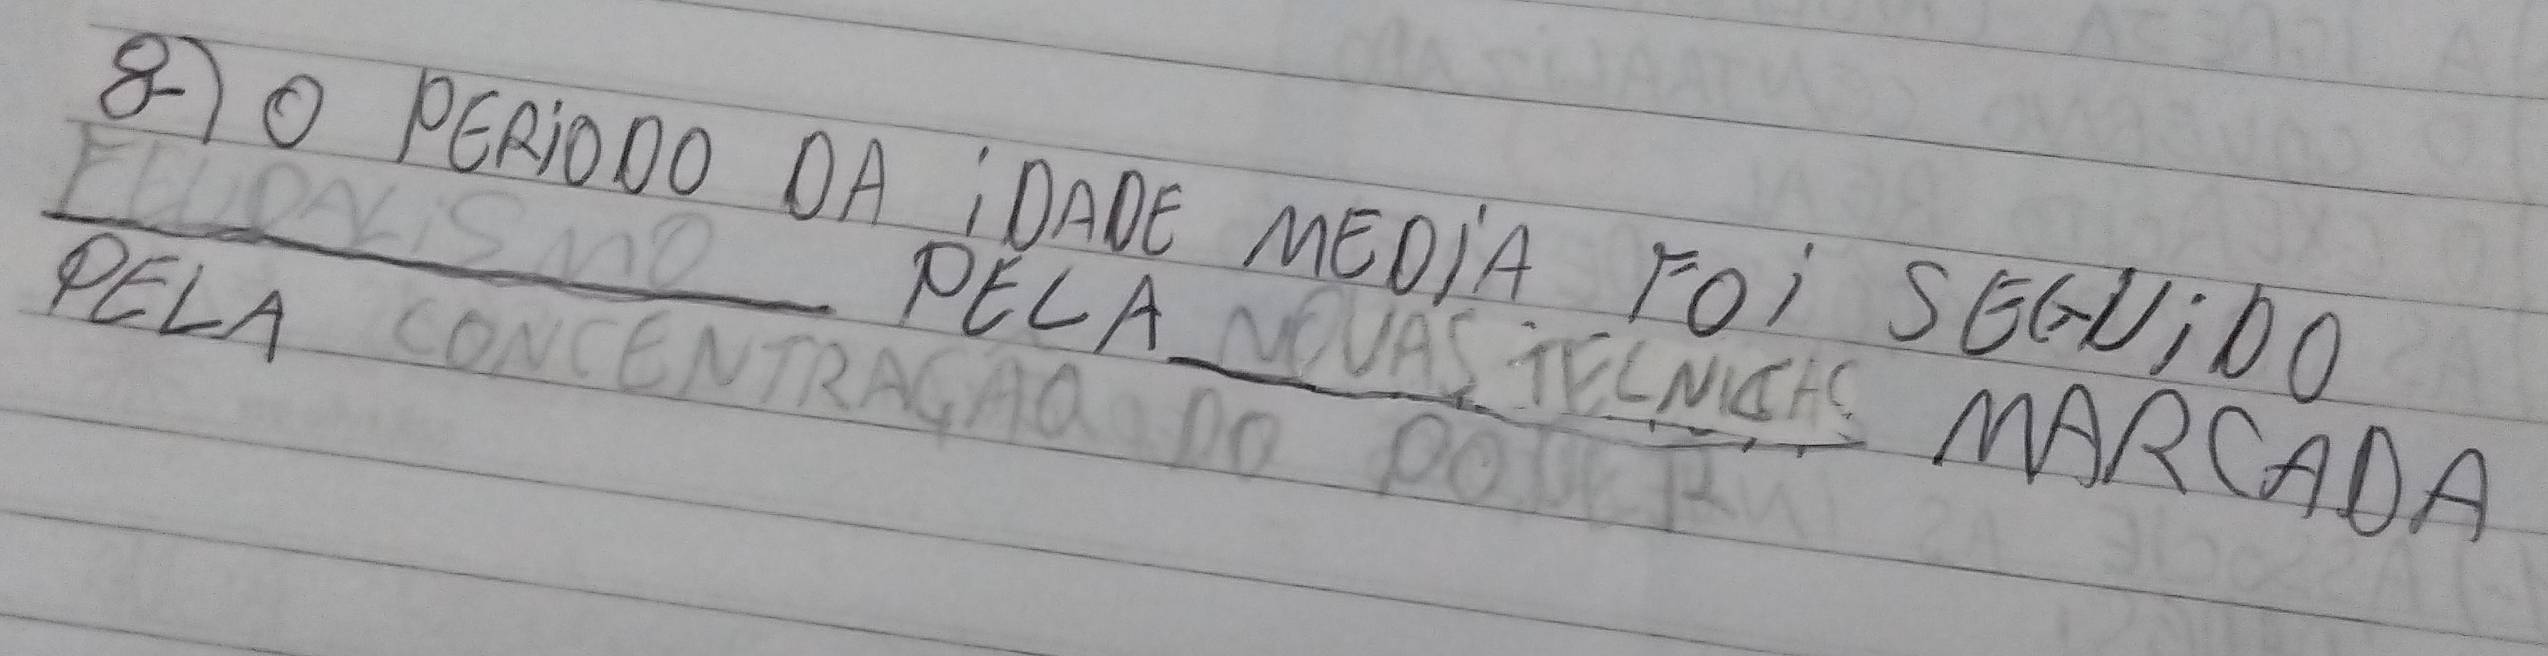 8) O PERIODO DA IDADE MEDIA FOI SEGUIDO
FEUDALISMO PELA NOVAS TECNICAS MARCADA
PELA CONCENTRAÇÃO DO PODER